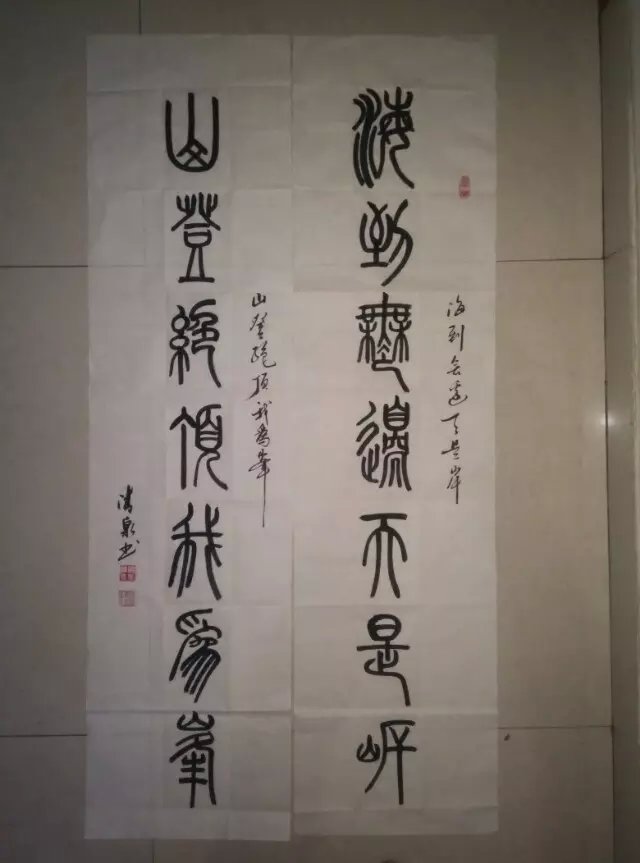 海到無邊天是岸
海到无边天是岸
山登絕頂我為峯
山登绝顶我为峰
清泉书